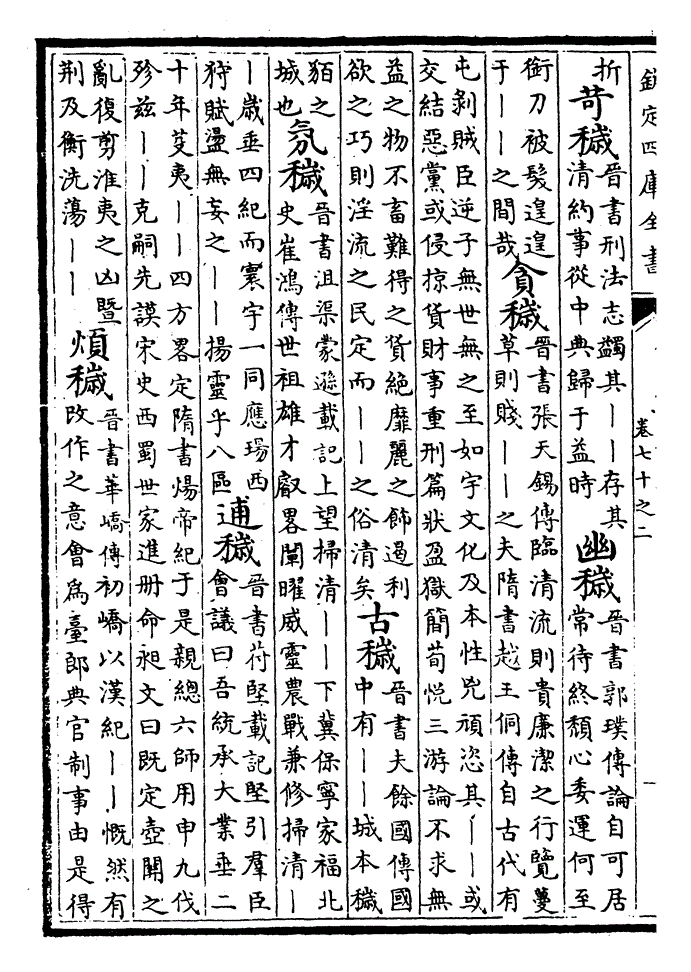 欽定四庫全書 卷七十之二
折
苛穢
晉書刑法志蠲其——存其
清約事從中典歸于益時
幽穢
晉書郭璞傳論自可居
常待終頹心委運何至
銜刀被髮遑遑
于——之間哉
貪穢
晉書張天錫傳臨清流則貴廉潔之行覽蔓
草則賤——之夫隋書越王侗傳自古代有
屯剝賊臣逆子無世無之至如宇文化及本性兇頑恣其——或
交結惡黨或侵掠貨財事重刑篇狀盈獄簡荀悅三游論不求無
益之物不畜難得之貨絕靡麗之飾遏利
欲之巧則淫流之民定而——之俗清矣
古穢
晉書夫餘國傳國
中有——城本穢
貊之
城也
氛穢
晉書沮渠蒙遜載記上望掃清——下冀保寧家福北
史崔鴻傳世祖雄才叡畧闡曜威靈農戰兼修掃清—
—歲垂四紀而寰宇一同應瑒西
狩賦盪無妄之——揚靈乎八區
逋穢
晉書苻堅載記堅引羣臣
會議曰吾統承大業垂二
十年芟夷——四方畧定隋書煬帝紀于是親總六師用申九伐
殄兹——克嗣先謨宋史西蜀世家進冊命昶文曰既定壺關之
亂復剪淮夷之凶暨
荆及衡洗蕩——
煩穢
晉書華嶠傳初嶠以漢紀——慨然有
改作之意會為臺郎典官制事由是得